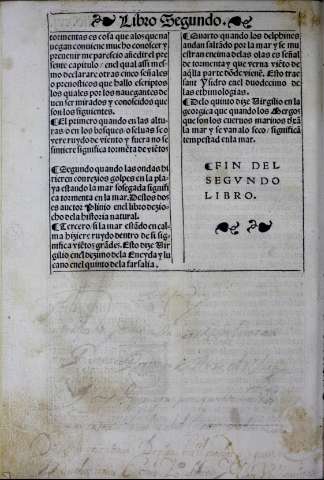 Libro Segundo.
tormentas es cosa que alos que na
uegan conuiene mucho conoscer y
preuenir me parescio añedir el pre
sente capitulo / en el qual assi mes
mo declarare otras cinco señales
o prenosticos que hallo escriptos
los quales por los nauegantes de
uen ser mirados y conoscidos que
son los siguientes.
¶ El primero quando en las altu
ras o en los bosques o seluas se o
yere ruydo de viento y fuera no se
sintiere significa tormẽta de viẽtos
¶ Segundo quando las ondas hi
rieren con rezios golpes en la pla
ya estando la mar sosegada signifi
ca tormenta en la mar. Destos dos
es auctor Plinio en el libro dezio
cho de la historia natural.
¶ Tercero si la mar estãdo en cal
ma hiziere ruydo dentro de si sig
nifica viẽtos grãdes. Esto dize Vir
gilio en el dezimo dela Eneyda y lu
cano en el quinto de la farsalia.
¶ Quarto quando los delphines
andan saltãdo por la mar y se mu
estran encima delas olas es señal
de tormenta y que verna viẽto de
aq̃lla parte dõde vienẽ. Esto trae
sant Ysidro en el duodecimo de
las ethimologias.
¶ Delo quinto dize Virgilio en la
georgica que quando los Mergos
que son los cueruos marinos dexã
la mar y se van alo seco / significã
tempestad en la mar.
¶ FIN DEL
SEGVNDO
LIBRO.